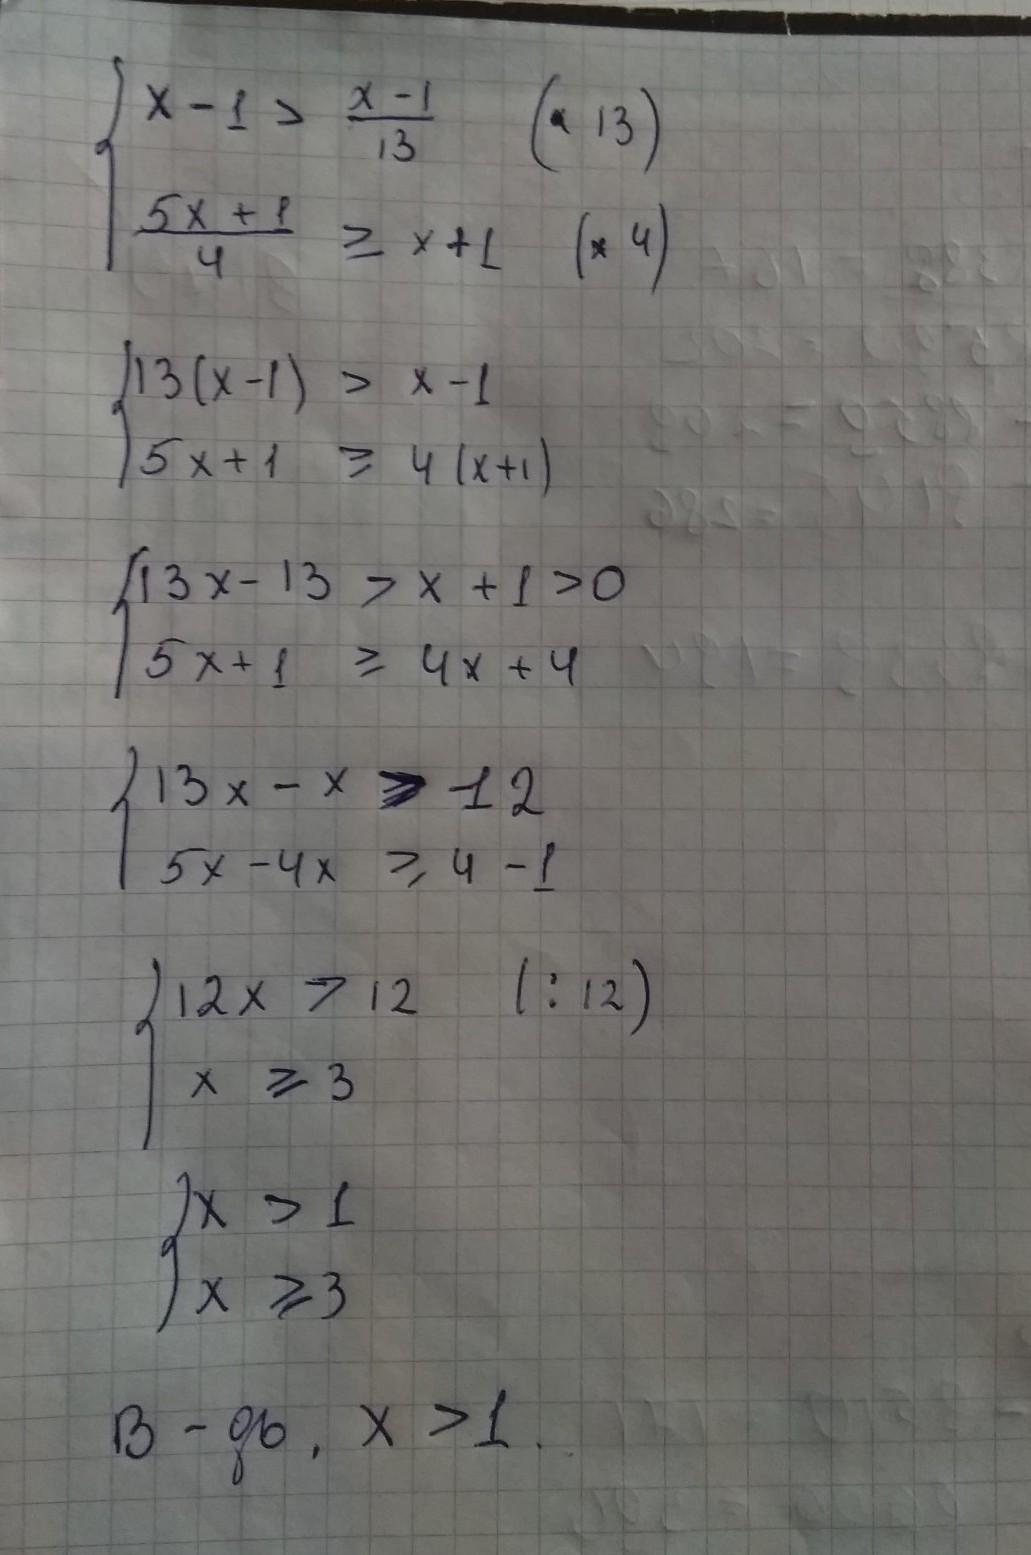 x - 1 > (x - 1)/13 (× 13)
(5x + 1)/4 ≥ x + 1 (× 4)
13(x - 1) > x - 1
5x + 1 ≥ 4(x + 1)
13x - 13 > x + 1 > 0
5x + 1 ≥ 4x + 4
13x - x > 12
5x - 4x ≥ 4 - 1
12x > 12 (: 12)
x ≥ 3
x > 1
x ≥ 3
В - дь, x > 1.